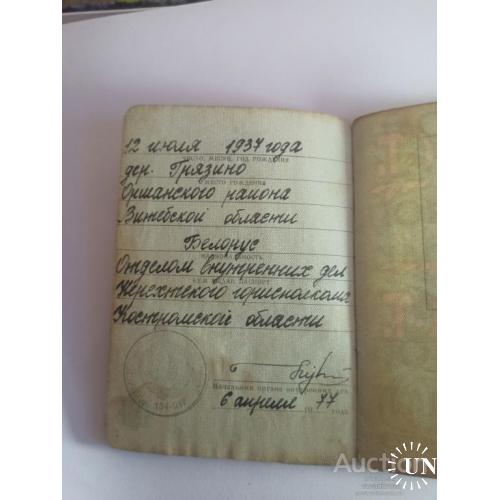 12 июля 1937 года
ЧИСЛО, МЕСЯЦ, ГОД РОЖДЕНИЯ
дер. Грязино
МЕСТО РОЖДЕНИЯ
Оршанского района
Витебской области
Белорус
НАЦИОНАЛЬНОСТЬ
Отделом внутренних дел
КЕМ ВЫДАН ПАСПОРТ
Нерехтского горисполкома
Костромской области
Начальник органа внутренних дел
6 апреля 1977 года
Auction
UN